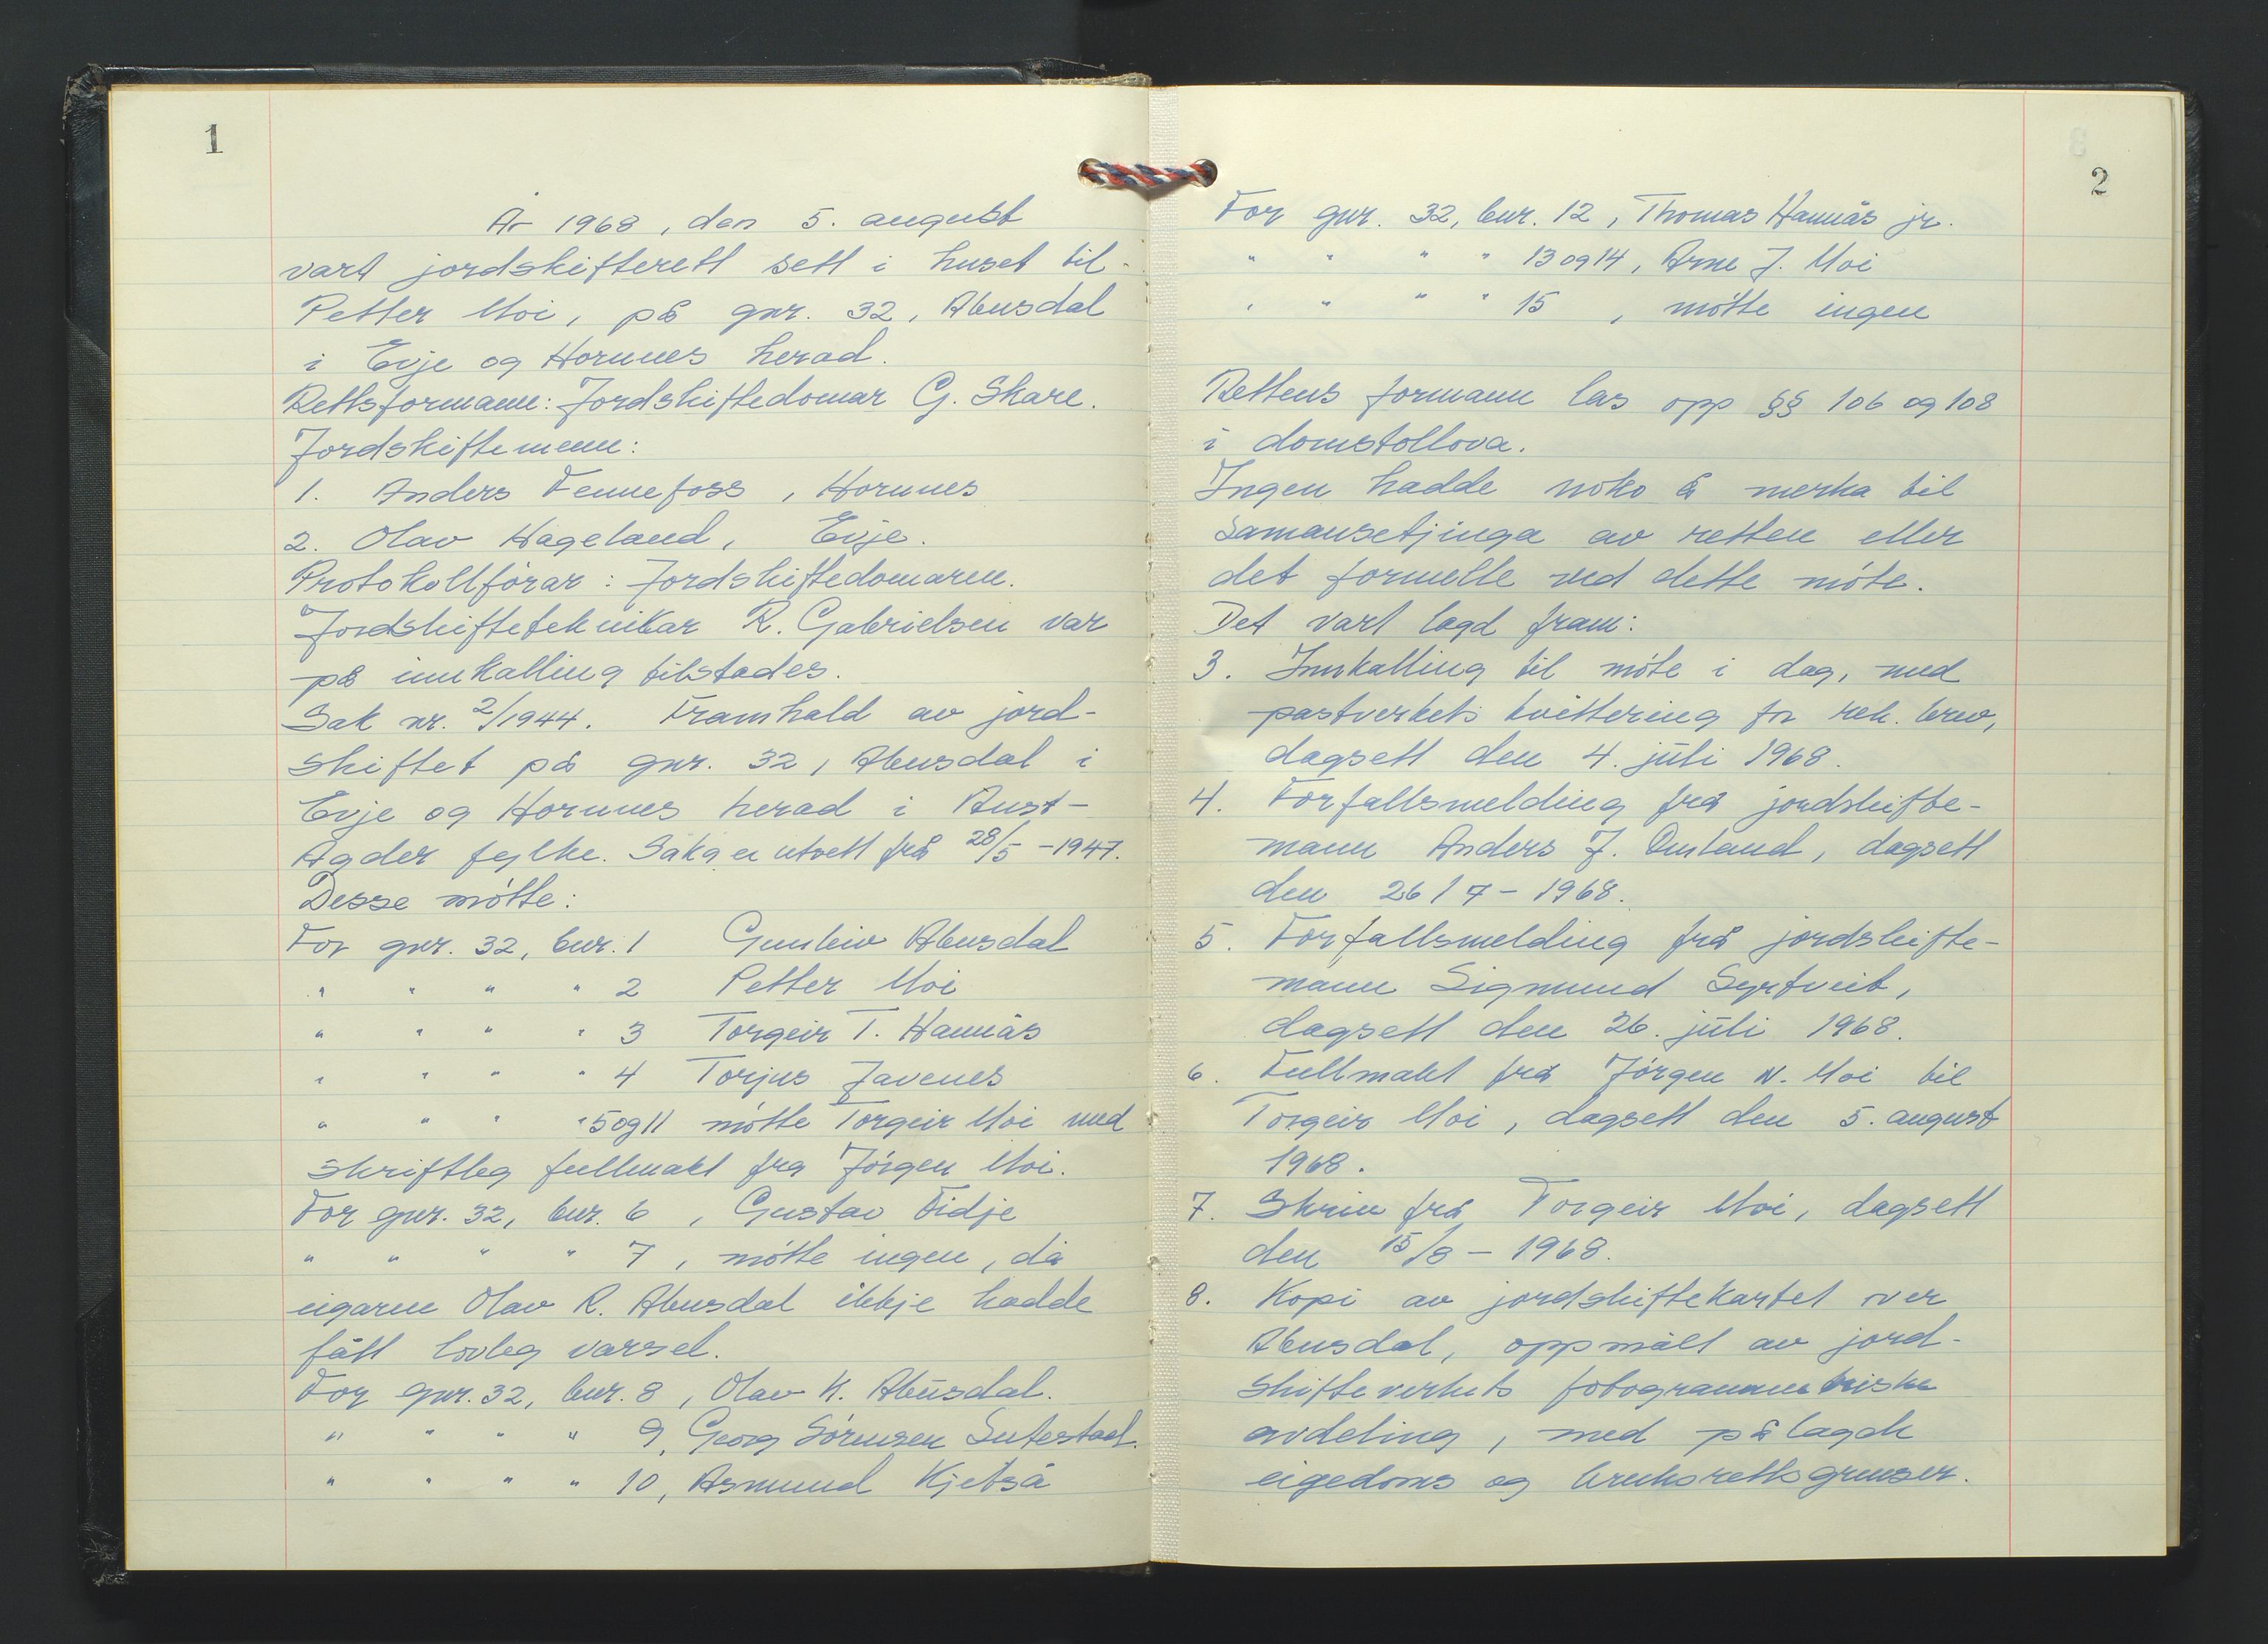 1
År 1968, den 5. august
vart jordskifterett sett i huset til
Petter Moi, på gnr. 32, Abusdal
i Evje og Hornnes herad.
Rettsformann: Jordskiftedomar G. Skare.
Jordskiftemenn:
1. Anders Fennefoss, Hornnes
2. Olav Hageland, Evje.
Protokollförar: Jordskiftedomaren.
Jordskifteteknikar R. Gabrielsen var
på innkalling tilstades.
Sak nr. 2/1944. Framhald av jord-
skiftet på gnr. 32, Abusdal i
Evje og Hornnes herad i Aust-
Agder fylke. Saka er utsett frå 28/5-1947.
Desse mötte:
For gnr. 32, bnr. 1 Gunleiv Abusdal
" " " " 2 Petter Moi
" " " " 3 Torgeir T. Hannås
" " " " 4 Torjus Javenes
" " " " 5 og 11 mötte Torgeir Moi med
skriftleg fullmakt fra Jörgen Moi.
For gnr. 32, bnr. 6, Gustav Fidje
" " " " 7, mötte ingen, då
eigaren Olav R. Abusdal ikkje hadde
fått lovleg varsel.
For gnr. 32, bnr. 8, Olav K. Abusdal.
" " " " 9, Georg Sörensen
" " " " 10, Asmund Kjetså
2
For gnr. 32, bnr. 12, Thomas Hannås jr.
" " " " 13 og 14, Arne J. Moi
" " " " 15, mötte ingen
Rettens formann las opp §§ 106 og 108
i domstollova.
Ingen hadde noko å merka til
samansetjinga av retten eller
det formelle ved dette möte.
Det vart lagd fram:
3. Innkalling til möte i dag, med
postverkets kvittering for rek. brev,
dagsett den 4. juli 1968.
4. Forfallsmelding frå jordskifte-
mann Anders J. Omland, dagsett
den 26/7-1968.
5. Forfallsmelding frå jordskifte-
mann Sigmund Syrtveit,
dagsett den 26. juli 1968.
6. Fullmakt frå Jörgen N. Moi til
Torgeir Moi, dagsett den 5. august
1968.
7. Skriv frå Torgeir Moi, dagsett
den 15/8-1968.
8. Kopi av jordskiftekartet over
Abusdal, oppmålt av jord-
skifteverkets fotogrammetriske
avdeling, med pålagde
eigedoms og bruksrettsgrenser.